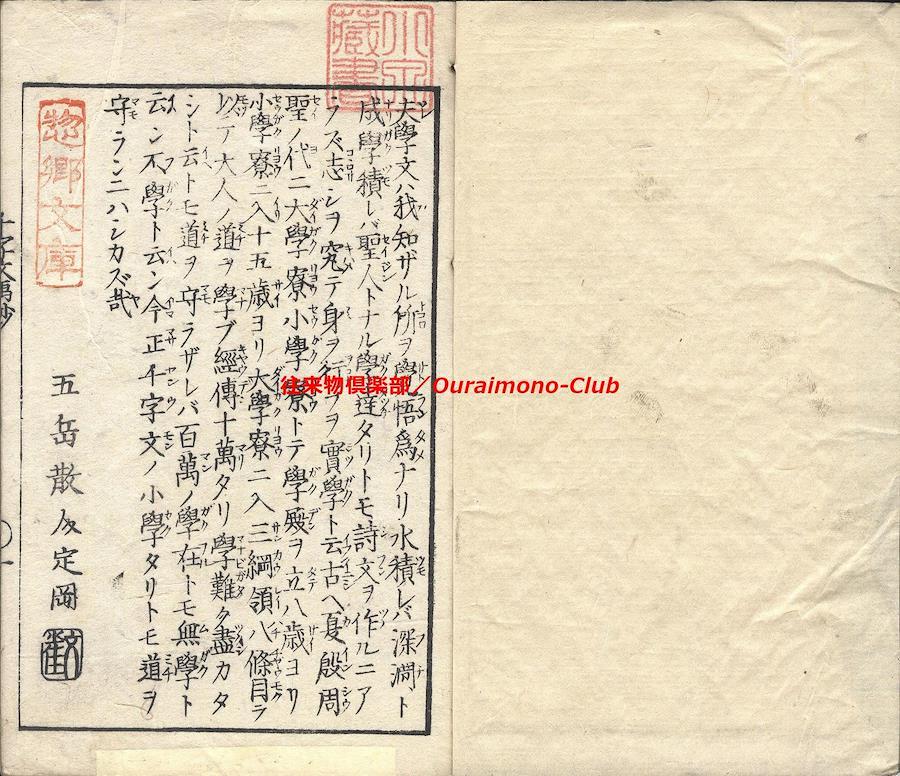 夫學文ハ我知ザル所ヲ學悟爲ナリ水積レバ深淵ト
成學積レバ聖人トナル學達タリトモ詩文ヲ作ルニア
ラズ志シヲ究テ身ヲ行フヲ實學ト云古ヘ夏殷周
聖ノ代ニ大學寮小學寮トテ學殿ヲ立八歳ヨリ
小學寮ニ入十五歳ヨリ大學寮ニ入三綱領八條目ラ
以テ大人ノ道ヲ學ブ經傳十萬タリ學難ク盡カタ
シト云トモ道ヲ守ラザレバ百萬ノ學在トモ無學ト
云ン不學ト云ン今正千字文ノ小學タリトモ道ヲ
守ランニハシカズ哉
五岳散人定岡
惣郷文庫
藏書
往来物倶楽部／Ouraimono-Club